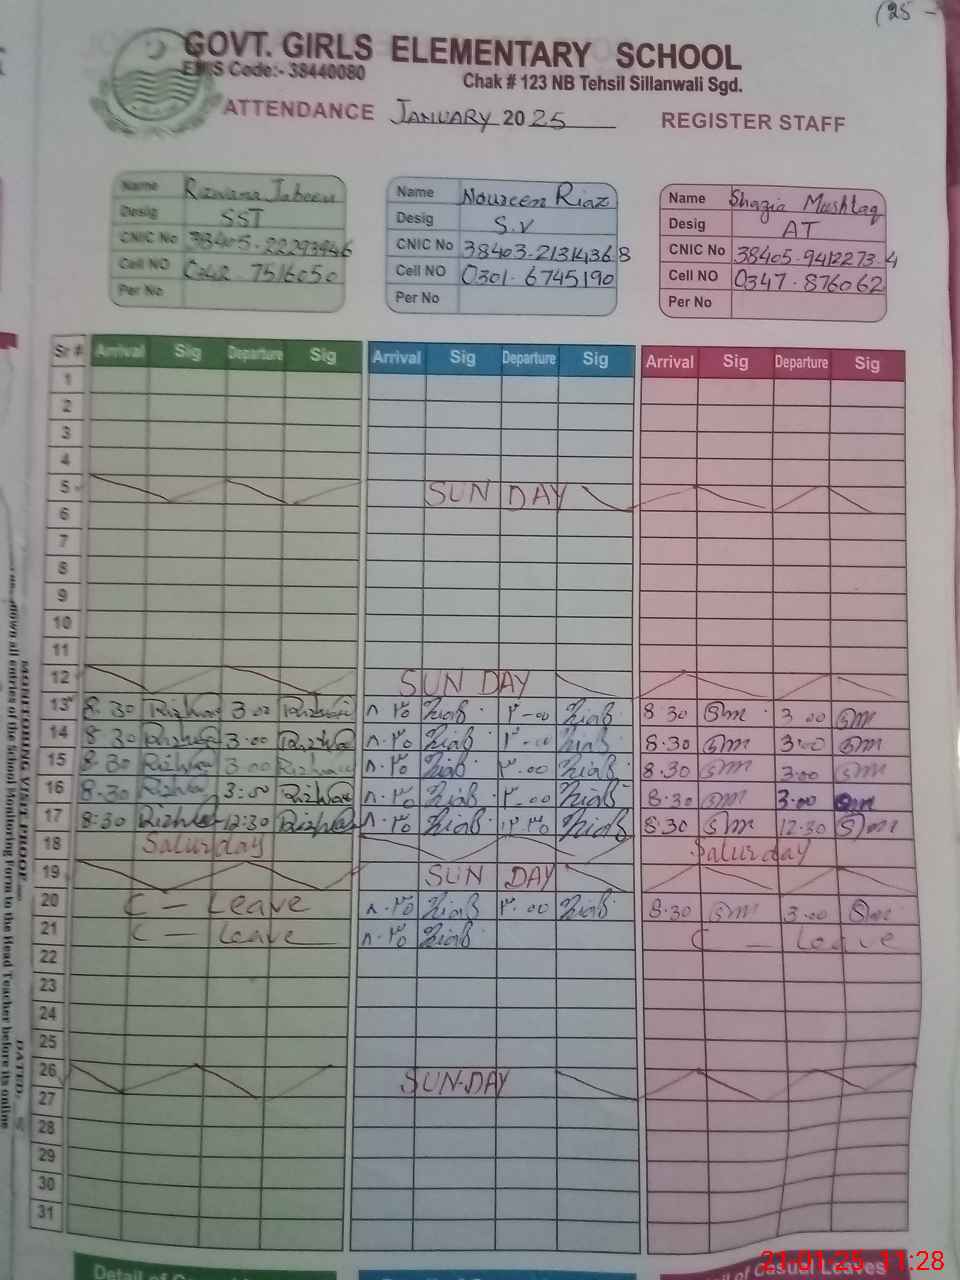 (25 -
GOVT. GIRLS ELEMENTARY SCHOOL
EMIS Code:- 38440080
Chak # 123 NB Tehsil Sillanwali Sgd.
ATTENDANCE JANUARY 2025 REGISTER STAFF
Name Rizwana Jabeen
Desig SST
CNIC No
Cell NO 0342 7516050
Per No
Name Noureen Riaz
Desig S.V
CNIC No 38403-2131436 8
Cell NO 0301-6745190
Per No
Name Shazia Mushtaq
Desig AT
CNIC No 38405-9412273-4
Cell NO 0347-876062
Per No
Sr # Arrival Sig Departure Sig Arrival Sig Departure Sig Arrival Sig Departure Sig
1
2
3
4
5 SUN DAY
6
7
8
9
10
11
12 SUN DAY
13 8:30 3:00 ۸-۳۰ ۳-۰۰ 8:30 Sm 3:00 Sm
14 8:30 3:00 ۸-۳۰ ۳-۰۰ 8:30 Sm 3:00 Sm
15 8:30 3:00 ۸-۳۰ ۳-۰۰ 8:30 Sm 3:00 Sm
16 8:30 3:00 ۸-۳۰ ۳-۰۰ 8:30 Sm 3:00 Sm
17 8:30 12:30 ۸-۳۰ ۱۲-۳۰ 8:30 Sm 12:30 Sm
18 Saturday Saturday
19 SUN DAY
20 C - Leave ۸-۳۰ ۳-۰۰ 8:30 Sm 3:00 Sm
21 C - Leave ۸-۳۰ C - Leave
22
23
24
25
26 SUN-DAY
27
28
29
30
31
Casual Leaves
21.01.25 11:28
MONITORING VISIT PROOF
down all entries of the School Monitoring Form to the Head Teacher before its online
DATED,